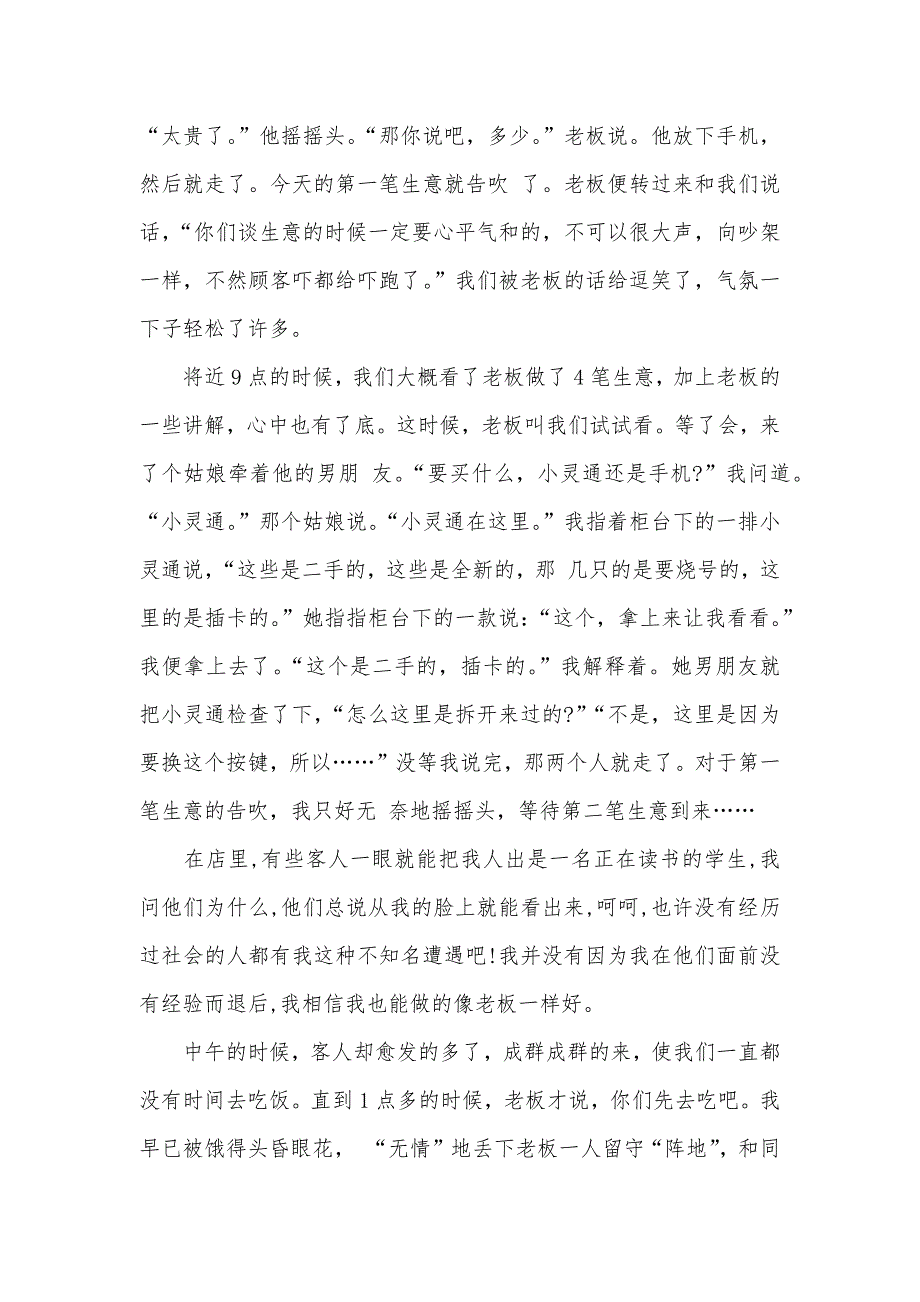 “太贵了。”他摇摇头。“那你说吧，多少。”老板说。他放下手机，
然后就走了。今天的第一笔生意就告吹 了。老板便转过来和我们说
话，“你们谈生意的时候一定要心平气和的，不可以很大声，向吵架
一样，不然顾客吓都给吓跑了。”我们被老板的话给逗笑了，气氛一
下子轻松了许多。
将近9点的时候，我们大概看了老板做了4笔生意，加上老板的
一些讲解，心中也有了底。这时候，老板叫我们试试看。等了会，来
了个姑娘牵着他的男朋 友。“要买什么，小灵通还是手机?”我问道。
“小灵通。”那个姑娘说。“小灵通在这里。”我指着柜台下的一排小
灵通说，“这些是二手的，这些是全新的，那 几只的是要烧号的，这
里的是插卡的。”她指指柜台下的一款说：“这个，拿上来让我看看。”
我便拿上去了。“这个是二手的，插卡的。”我解释着。她男朋友就
把小灵通检查了下，“怎么这里是拆开来过的?”“不是，这里是因为
要换这个按键，所以……”没等我说完，那两个人就走了。对于第一
笔生意的告吹，我只好无 奈地摇摇头，等待第二笔生意到来……
在店里,有些客人一眼就能把我人出是一名正在读书的学生,我
问他们为什么,他们总说从我的脸上就能看出来,呵呵,也许没有经历
过社会的人都有我这种不知名遭遇吧!我并没有因为我在他们面前没
有经验而退后,我相信我也能做的像老板一样好。
中午的时候，客人却愈发的多了，成群成群的来，使我们一直都
没有时间去吃饭。直到1点多的时候，老板才说，你们先去吃吧。我
早已被饿得头昏眼花， “无情”地丢下老板一人留守“阵地”，和同